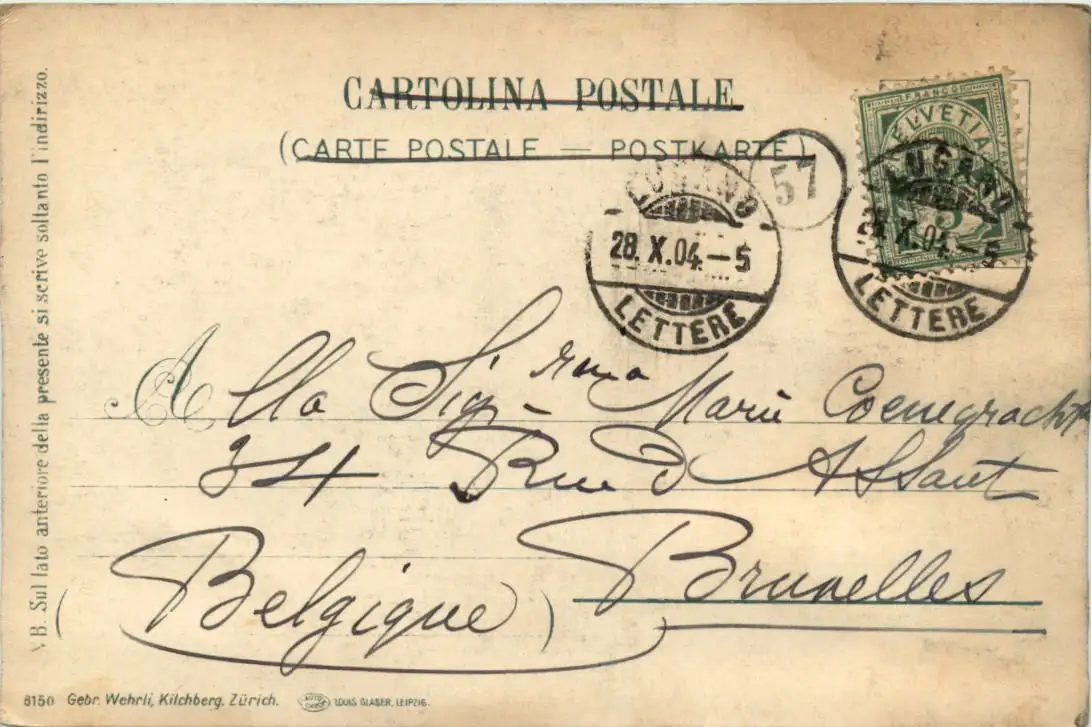 CARTOLINA POSTALE
(CARTE POSTALE — POSTKARTE)
57
FRANCO
HELVETIA
5
LUGANO
28. X. 04. — 5
LETTERE
LUGANO
28. X. 04. — 5
LETTERE
Alla Sigrna Marie Coenegracht
34 Rue d'Assaut
Bruxelles
(Belgique)
NB. Sul lato anteriore della presente si scrive soltanto l'indirizzo.
6150 Gebr. Wehrli, Kilchberg. Zürich.
LOUIS GLASER, LEIPZIG.